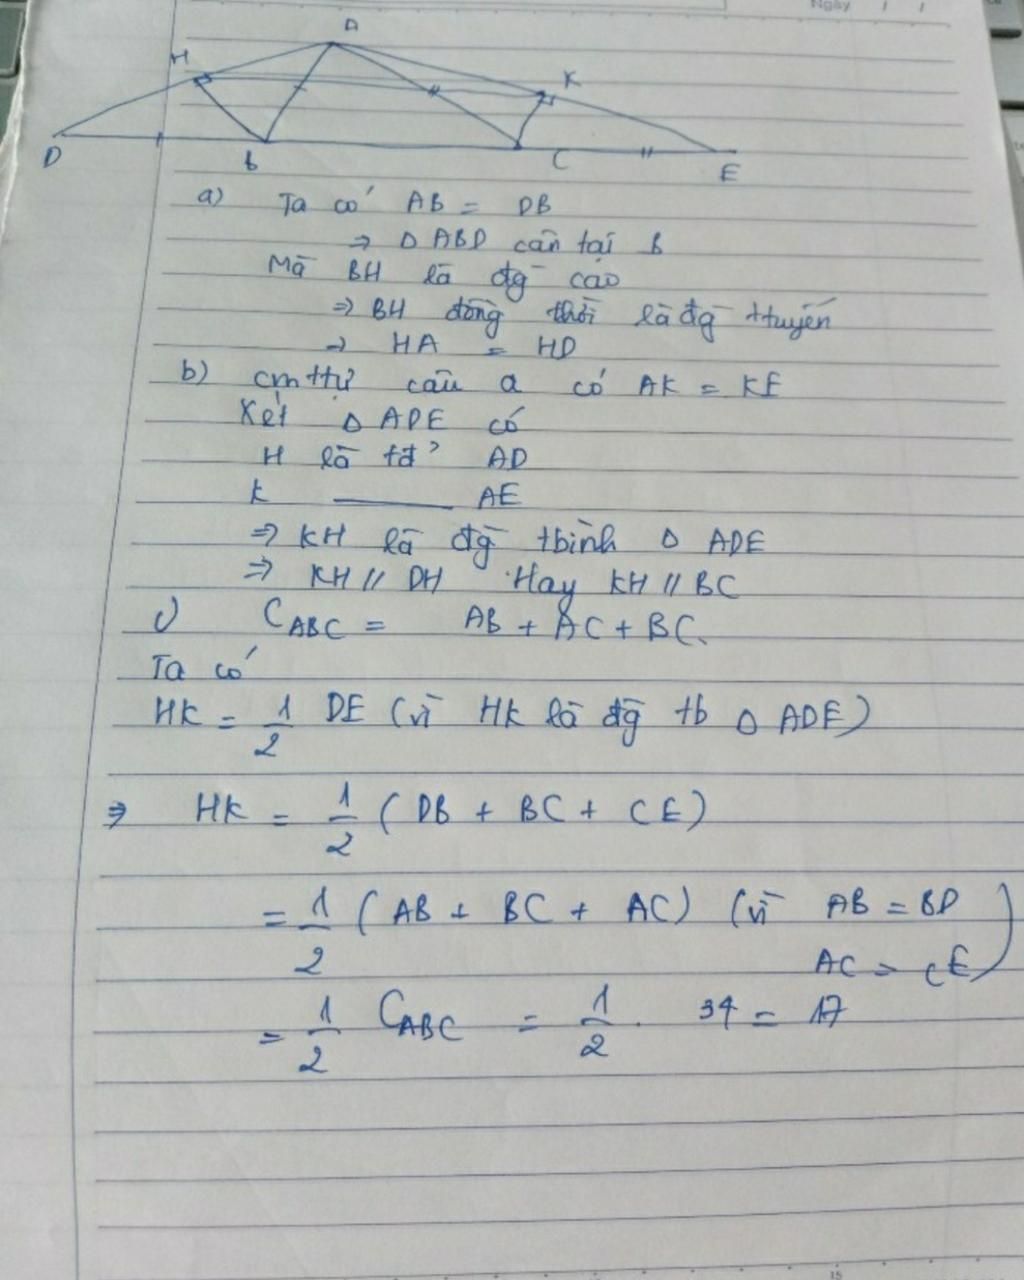 Ngày / /
A
H
K
D
B
C
E
a) Ta có AB = DB
⇒ Δ ABD cân tại B
Mà BH là đg cao
⇒ BH đồng thời là đg ttuyến
⇒ HA = HD
b) cmttự câu a có AK = KE
Xét Δ ADE có
H là tđ' AD
K ——— AE
⇒ KH là đg tbình Δ ADE
⇒ KH // DH Hay KH // BC
c) C_ABC = AB + AC + BC.
Ta có
HK = 1/2 DE (vì HK là đg tb Δ ADE)
⇒ HK = 1/2 (DB + BC + CE)
= 1/2 (AB + BC + AC) (vì AB = BD
AC = CE)
= 1/2 C_ABC = 1/2 . 34 = 17
15